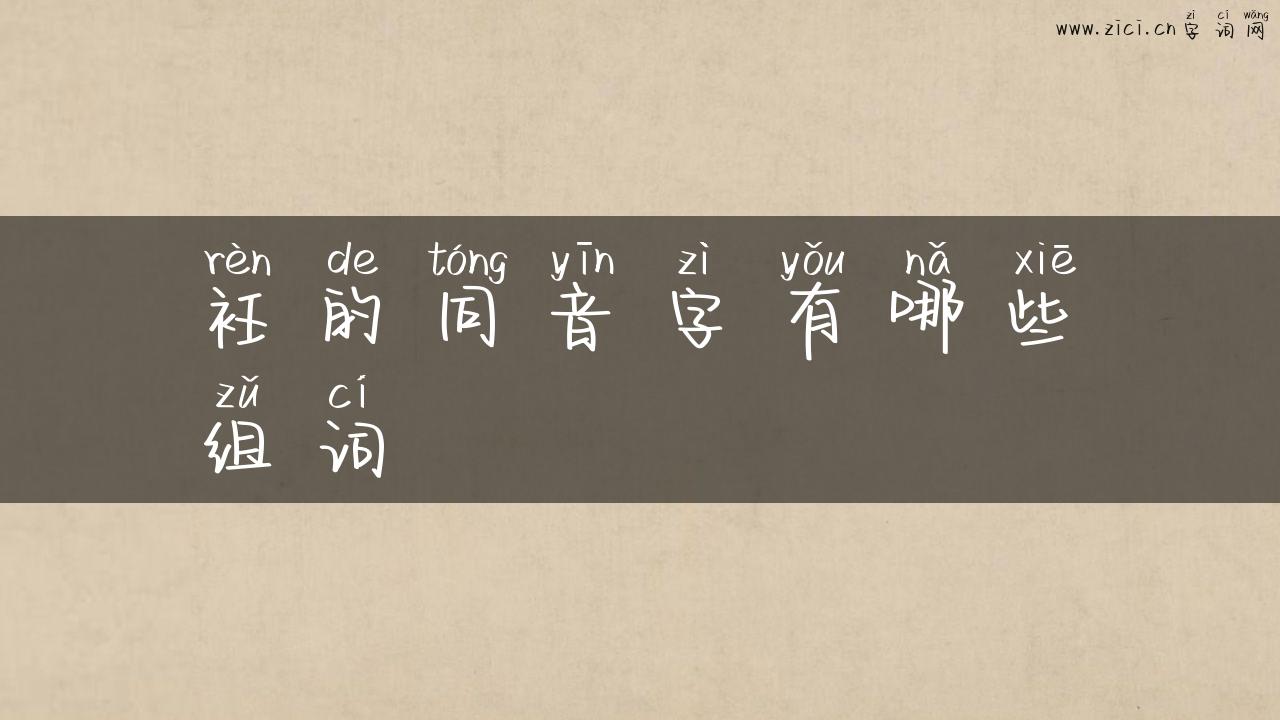 zì cí wǎng
www.zici.cn 字词网
rèn de tóng yīn zì yǒu nǎ xiē
衽的同音字有哪些
zǔ cí
组词